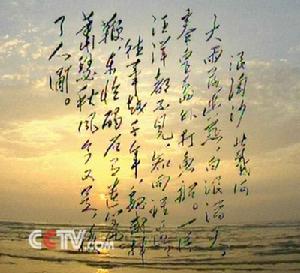 浪淘沙 北戴河
大雨落幽燕白浪滔天
秦皇岛外打鱼船一片
汪洋都不见知向谁边
往事越千年魏武挥
鞭东临碣石有遗篇
萧瑟秋风今又是换
了人间。
CCTV.com